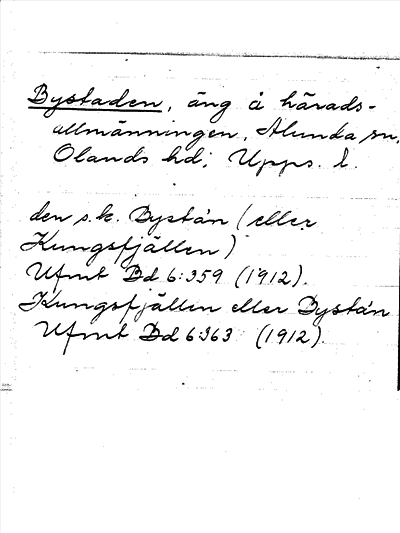 Bystaden, äng å härads-
allmänningen, Alunda sn,
Olands hd; Upps. l.
den s.k. Bystán (eller
Kungsfjällen)
Ufmt Bd 6:359 (1912).
Kungsfjällen eller Bystán
Ufmt Bd 6:363 (1912).